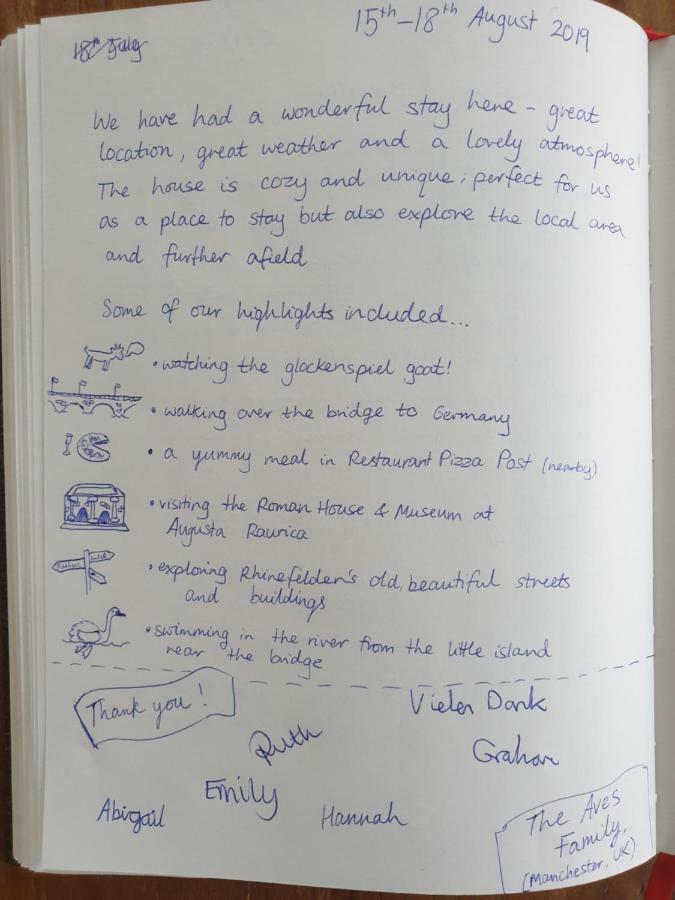 18th July
15th–18th August 2019
We have had a wonderful stay here – great
location, great weather and a lovely atmosphere!
The house is cozy and unique; perfect for us
as a place to stay but also explore the local area
and further afield
Some of our highlights included...
• watching the glockenspiel goat!
• walking over the bridge to Germany
• a yummy meal in Restaurant Pizza Post (nearby)
• visiting the Roman House & Museum at
Augusta Raurica
• exploring Rhinefelden's old, beautiful streets
and buildings
• swimming in the river from the little island
near the bridge
Thank you!
Vielen Dank
Ruth
Graham
Emily
Abigail
Hannah
The Aves
Family,
(Manchester, UK)